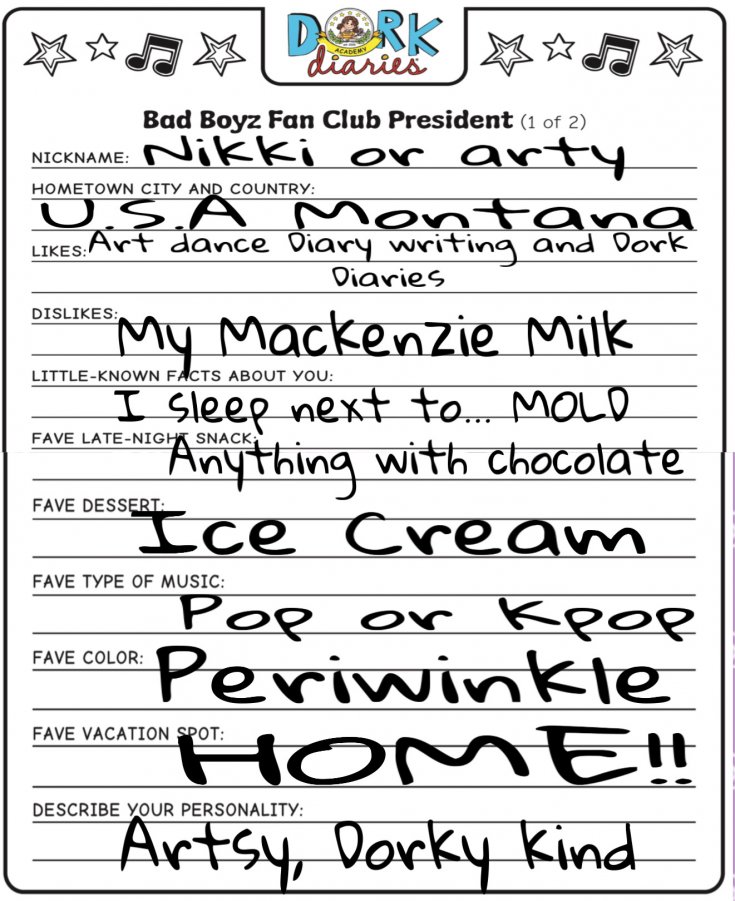 DORK
ACADEMY
diaries
Bad Boyz Fan Club President (1 of 2)
NICKNAME: Nikki or arty
HOMETOWN CITY AND COUNTRY:
U.S.A Montana
LIKES: Art dance Diary writing and Dork
Diaries
DISLIKES:
My Mackenzie Milk
LITTLE-KNOWN FACTS ABOUT YOU:
I sleep next to... MOLD
FAVE LATE-NIGHT SNACK:
Anything with chocolate
FAVE DESSERT:
Ice Cream
FAVE TYPE OF MUSIC:
Pop or Kpop
FAVE COLOR: Periwinkle
FAVE VACATION SPOT:
HOME!!
DESCRIBE YOUR PERSONALITY:
Artsy, Dorky kind